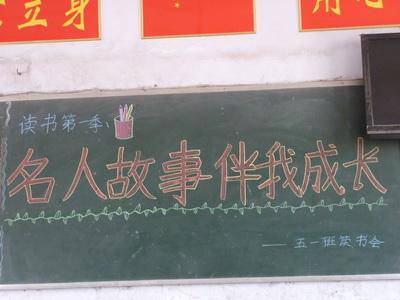 立身
读书第一季、
名人故事伴我成长
——五一班读书会